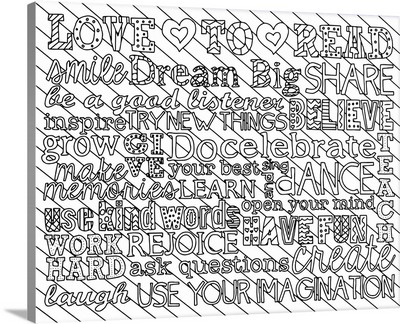 LOVE ♡ TO ♡ READ
smile Dream Big SHARE
be a good listener
inspire TRY NEW THINGS BELIEVE
grow GIVE Do your best celebrate
make memories LEARN sing DANCE TEACH
open your mind
use kind words
WORK HARD REJOICE HAVE FUN
ask questions create
laugh USE YOUR IMAGINATION